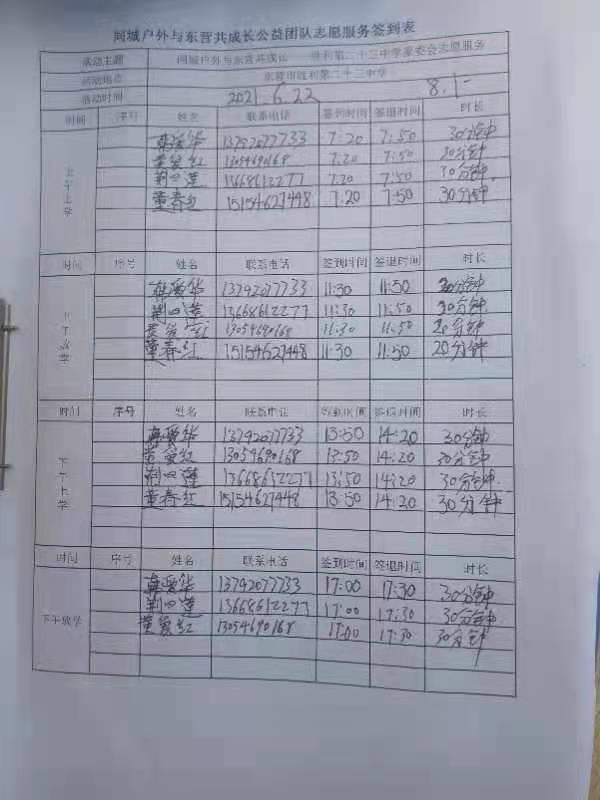 同城户外与东营共成长公益团队志愿服务签到表
活动主题 同城户外与东营共成长——胜利第二十三中学家委会志愿服务
活动地点 东营市胜利第二十三中学
活动时间 2021.6.22 8.1
时间 序号 姓名 联系电话 签到时间 签退时间 时长
上午上学
爱华 13792077733 7:20 7:50 30分钟
爱红 13054690168 7:20 7:50 30分钟
荆四莲 13668612277 7:20 7:50 30分钟
董春红 15154627448 7:20 7:50 30分钟
时间 序号 姓名 联系电话 签到时间 签退时间 时长
放学
爱华 13792077733 11:30 11:50 20分钟
荆四莲 13668612277 11:30 11:50 20分钟
爱红 13054690168 11:30 11:50 20分钟
董春红 15154627448 11:30 11:50 20分钟
时间 序号 姓名 联系电话 签到时间 签退时间 时长
下午上学
爱华 13792077733 13:50 14:20 30分钟
爱红 13054690168 13:50 14:20 30分钟
荆四莲 13668612277 13:50 14:20 30分钟
董春红 15154627448 13:50 14:20 30分钟
时间 序号 姓名 联系电话 签到时间 签退时间 时长
下午放学
爱华 13792077733 17:00 17:30 30分钟
荆四莲 13668612277 17:00 17:30 30分钟
爱红 13054690168 17:00 17:30 30分钟